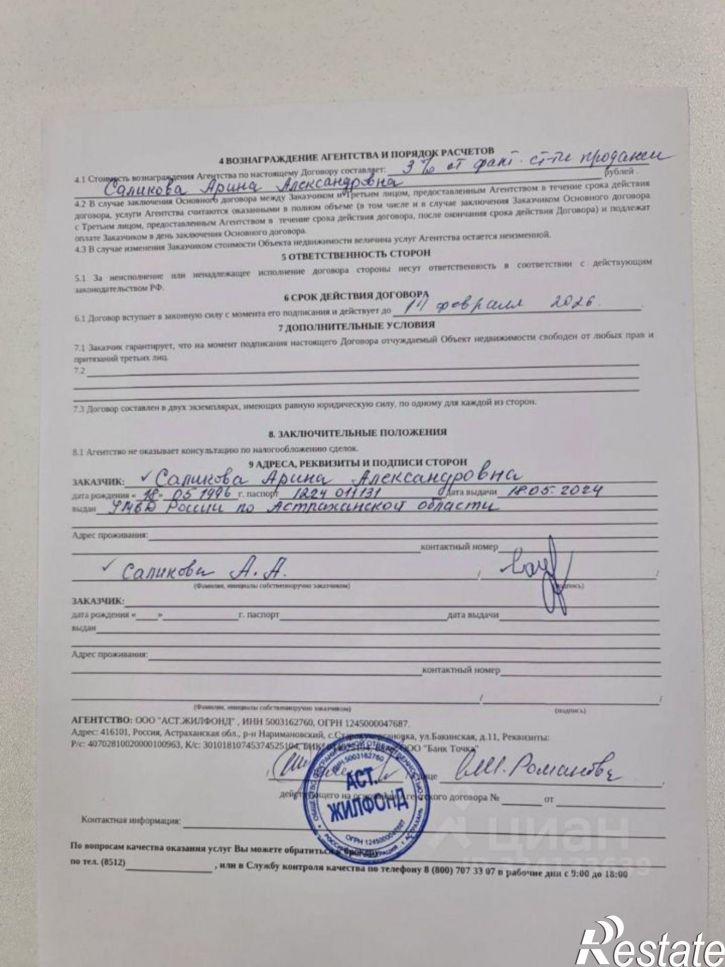 4 ВОЗНАГРАЖДЕНИЕ АГЕНТСТВА И ПОРЯДОК РАСЧЕТОВ
4.1 Стоимость вознаграждения Агентства по настоящему Договору составляет: 3 % от факт. ст-ти продажи
Саликова Арина Александровна рублей.
4.2 В случае заключения Основного договора между Заказчиком и Третьим лицом, предоставленным Агентством в течение срока действия
договора, услуги Агентства считаются оказанными в полном объеме (в том числе и в случае заключения Заказчиком Основного договора
с Третьим лицом, предоставленным Агентством в течение срока действия договора, после окончания срока действия Договора) и подлежат
оплате Заказчиком в день заключения Основного договора.
4.3 В случае изменения Заказчиком стоимости Объекта недвижимости величина услуг Агентства остается неизменной.
5 ОТВЕТСТВЕННОСТЬ СТОРОН
5.1 За неисполнение или ненадлежащее исполнение договора стороны несут ответственность в соответствии с действующим
законодательством РФ.
6 СРОК ДЕЙСТВИЯ ДОГОВОРА
6.1 Договор вступает в законную силу с момента его подписания и действует до 14 февраля 2026.
7 ДОПОЛНИТЕЛЬНЫЕ УСЛОВИЯ
7.1 Заказчик гарантирует, что на момент подписания настоящего Договора отчуждаемый Объект недвижимости свободен от любых прав и
притязаний третьих лиц.
7.2
7.3 Договор составлен в двух экземплярах, имеющих равную юридическую силу, по одному для каждой из сторон.
8. ЗАКЛЮЧИТЕЛЬНЫЕ ПОЛОЖЕНИЯ
8.1 Агентство не оказывает консультацию по налогообложению сделок.
9 АДРЕСА, РЕКВИЗИТЫ И ПОДПИСИ СТОРОН
ЗАКАЗЧИК: Саликова Арина Александровна
дата рождения « » 05 1996 г. паспорт 1224 011131 дата выдачи 18.05.2024
выдан УМВД России по Астраханской области
Адрес проживания:
контактный номер
Саликова А. А. / /
(Фамилия, инициалы собственноручно заказчиком) (подпись)
ЗАКАЗЧИК:
дата рождения « » г. паспорт дата выдачи
выдан
Адрес проживания:
контактный номер
/ /
(Фамилия, инициалы собственноручно заказчиком) (подпись)
АГЕНТСТВО: ООО "АСТ.ЖИЛФОНД" , ИНН 5003162760, ОГРН 1245000047687.
Адрес: 416101, Россия, Астраханская обл., р-н Наримановский, с.Старокучергановка, ул.Бакинская, д.11, Реквизиты:
Р/с: 40702810020000100963, К/с: 30101810745374525104, ООО "Банк Точка"
в лице Романова
действующего на основании Агентского договора № от
АСТ.
ЖИЛФОНД
ИНН 5003162760
ОГРН 1245000047687
Контактная информация:
По вопросам качества оказания услуг Вы можете обратиться к брокеру
по тел. (8512) , или в Службу контроля качества по телефону 8 (800) 707 33 07 в рабочие дни с 9:00 до 18:00
циан
Restate